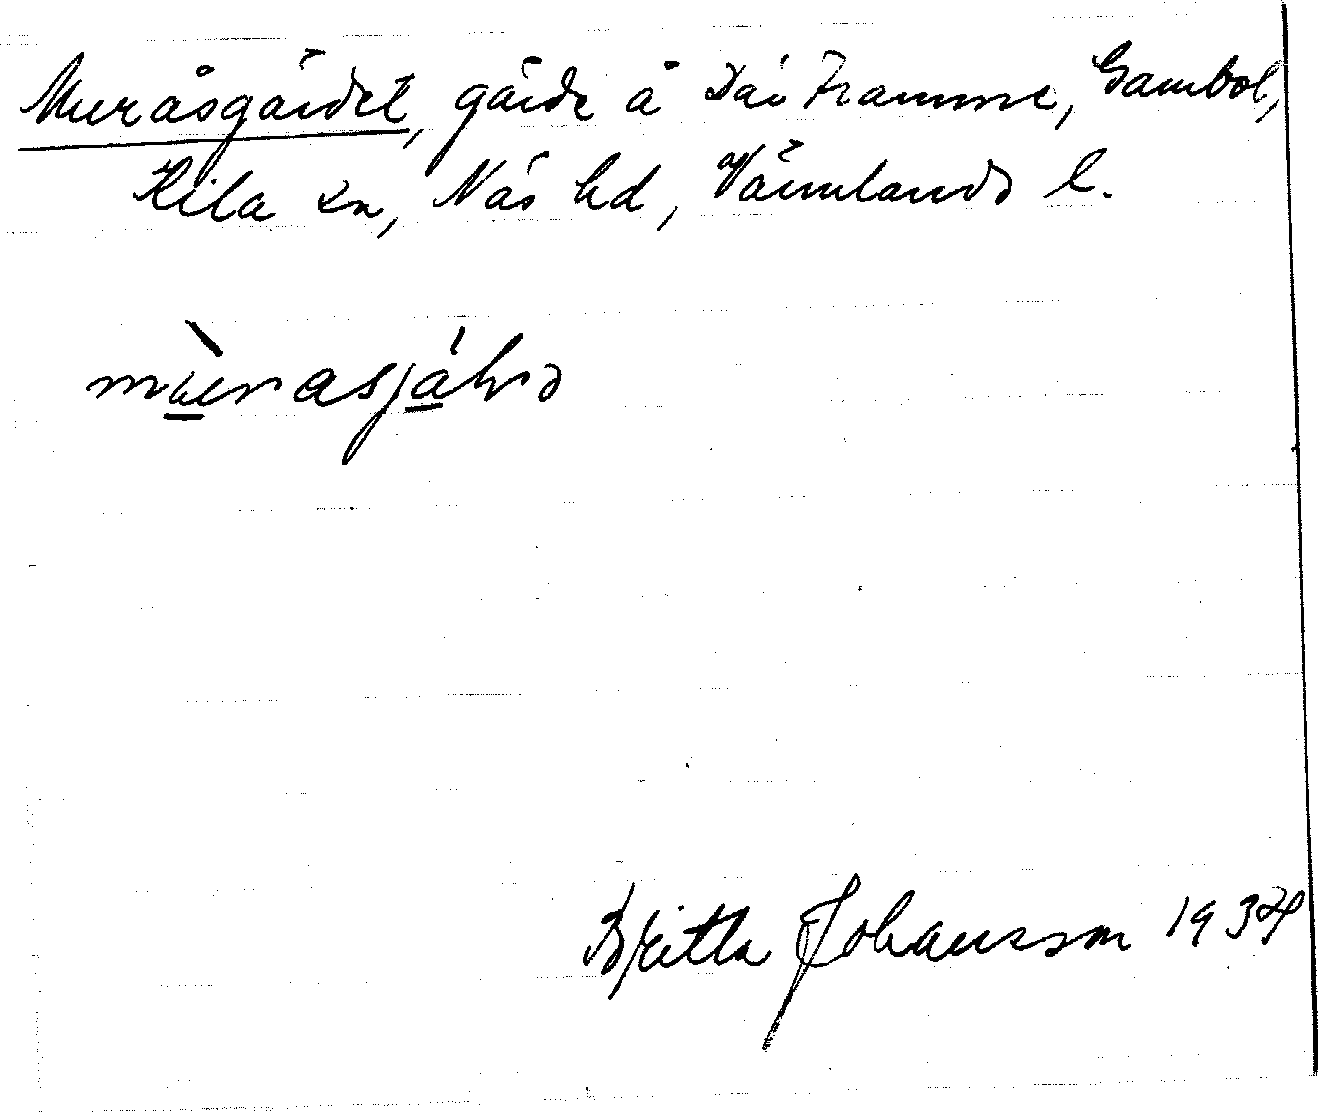 Muråsgärdet, gärde å Där Framme, Gambol,
Kila sn, Näs hd, Värmlands l.
Britta Johansson 1937